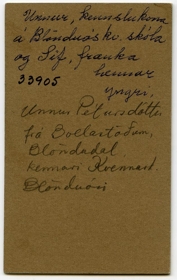 Unnur, kennslukona
á Blönduóskv. skóla
og Sif, frænka
33905 hennar
yngri,
Unnur Pétursdóttir
frá Bollastöðum,
Blöndudal.
kennari Kvennask.
Blönduósi